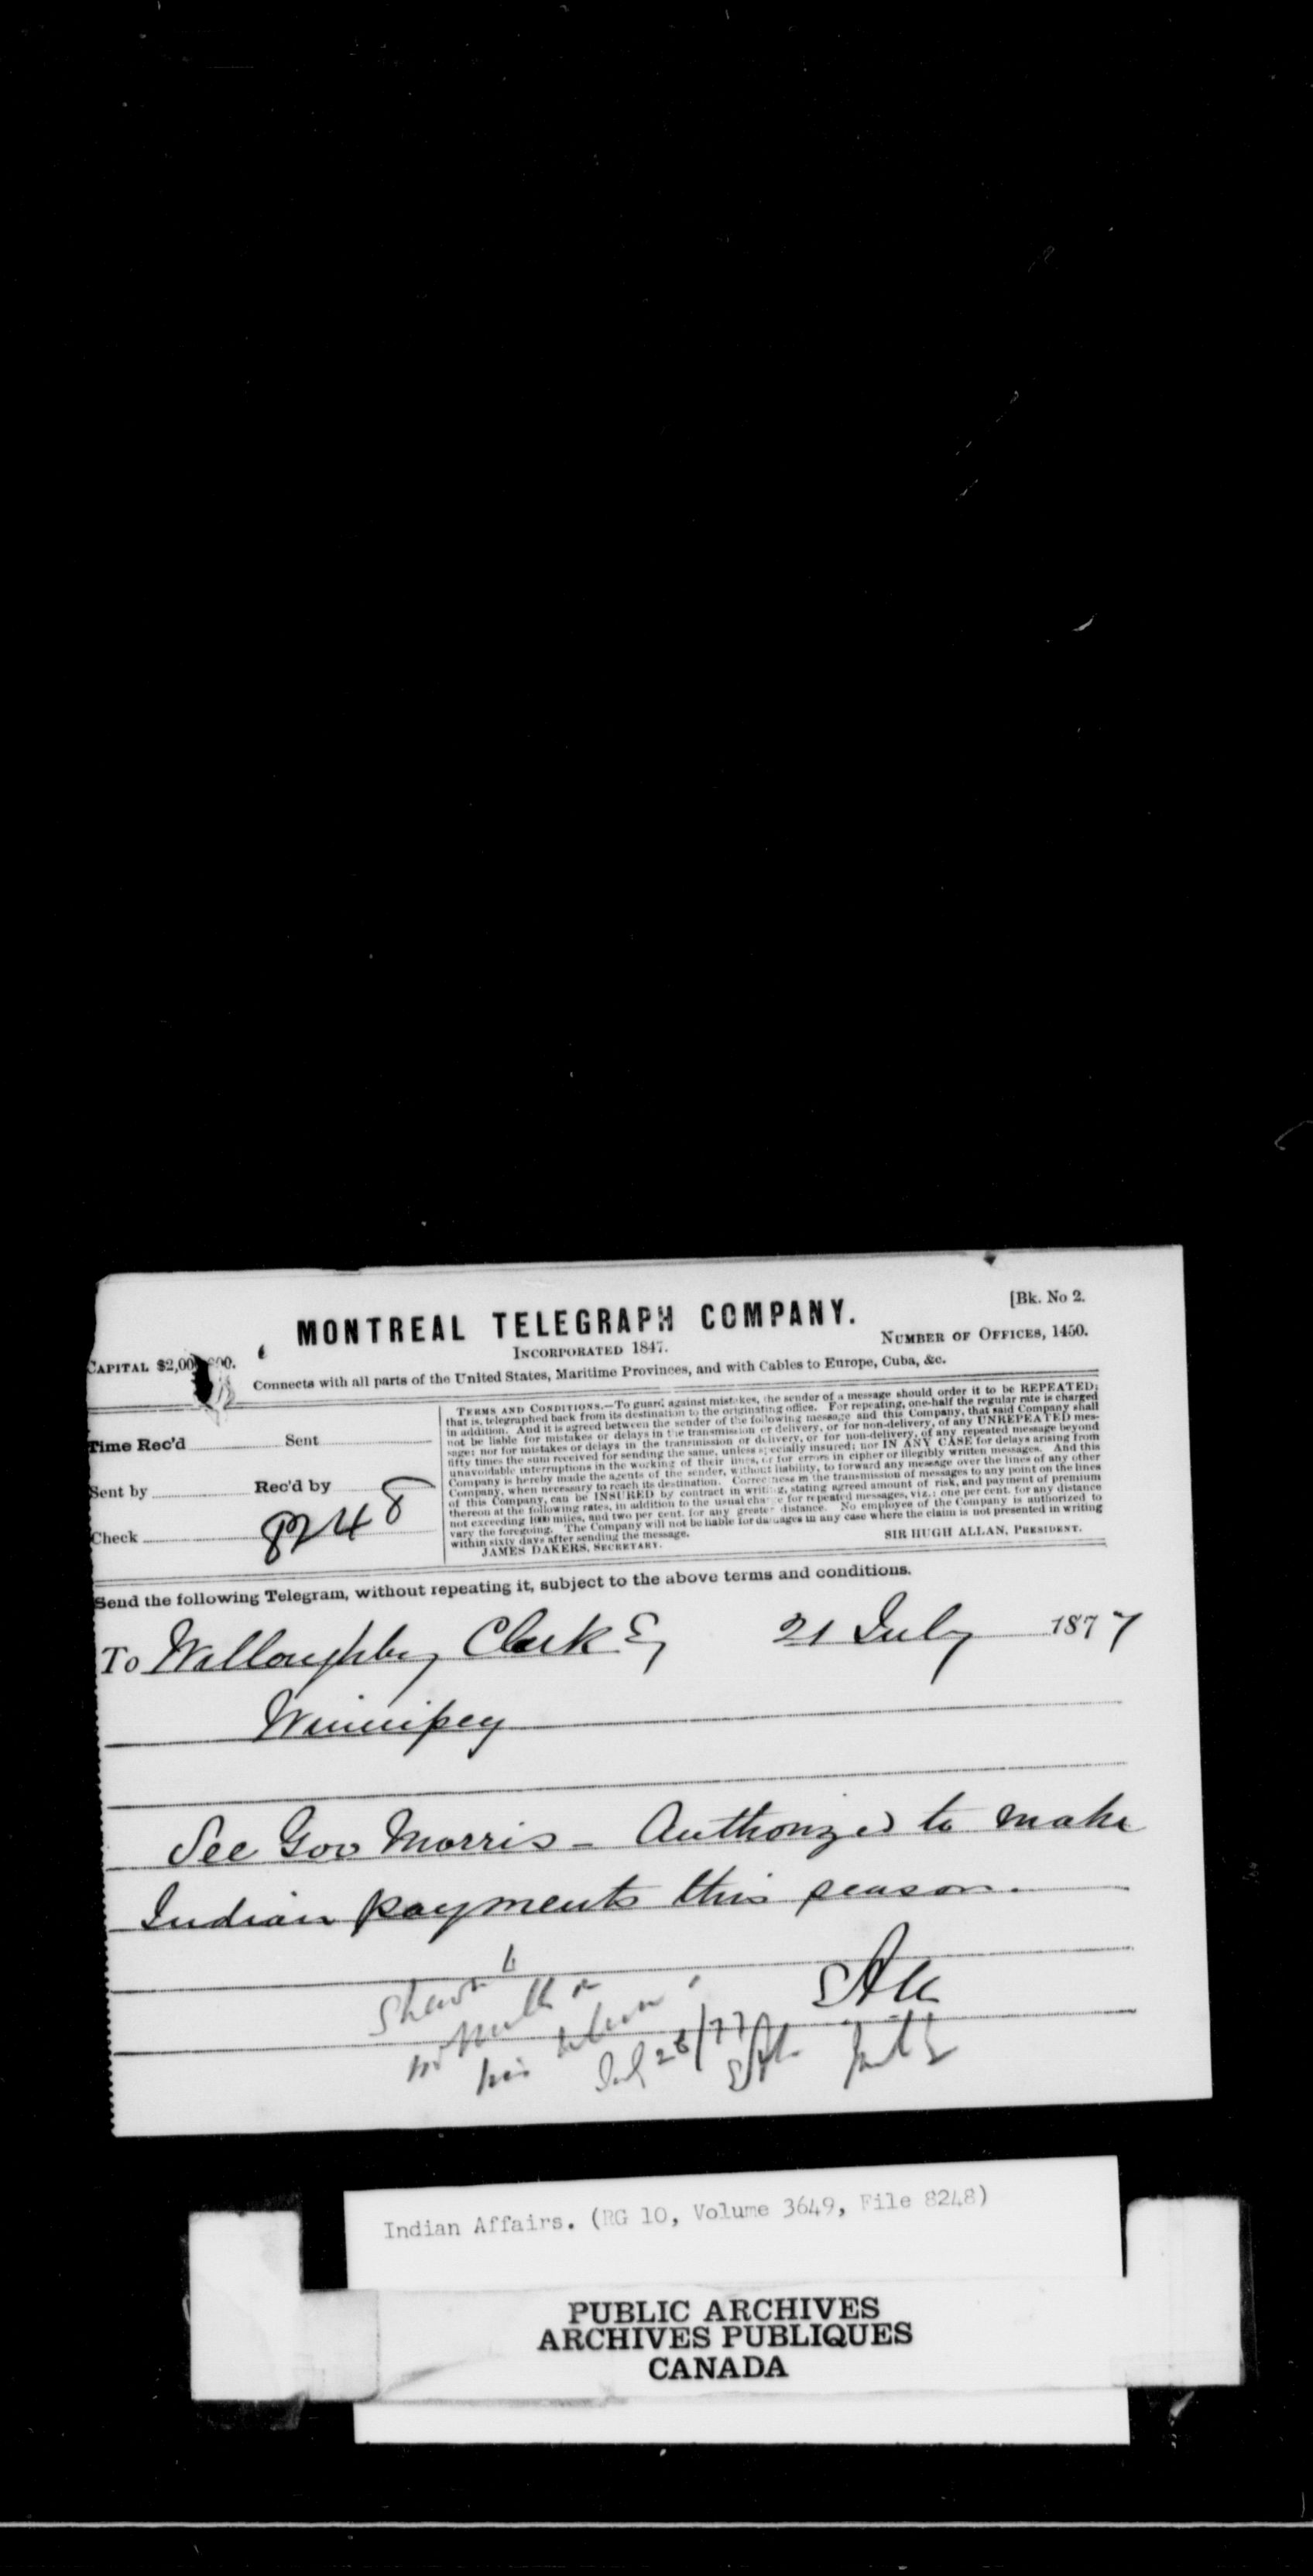 [Bk. No 2.
MONTREAL TELEGRAPH COMPANY.
INCORPORATED 1847.
NUMBER OF OFFICES, 1450.
CAPITAL $2,00
Connects with all parts of the United States, Maritime Provinces, and with Cables to Europe, Cuba, &c.
Time Rec'd Sent
Sent by Rec'd by
Check
8248
TERMS AND CONDITIONS.—To guard against mistakes, the sender of a message should order it to be REPEATED;
that is, telegraphed back from its destination to the originating office. For repeating, one-half the regular rate is charged
in addition. And it is agreed between the sender of the following message and this Company, that said Company shall
not be liable for mistakes or delays in the transmission or delivery, or for non-delivery, of any UNREPEATED mes-
sage; nor for mistakes or delays in the transmission or delivery, or for non-delivery, of any repeated message beyond
fifty times the sum received for sending the same, unless specially insured; nor IN ANY CASE for delays arising from
unavoidable interruptions in the working of their lines, or for errors in cipher or illegibly written messages. And this
Company is hereby made the agents of the sender, without liability, to forward any message over the lines of any other
Company, when necessary to reach its destination. Correctness in the transmission of messages to any point on the lines
of this Company, can be INSURED by contract in writing, stating agreed amount of risk, and payment of premium
thereon at the following rates, in addition to the usual charge for repeated messages, viz.: one per cent. for any distance
not exceeding 1000 miles, and two per cent. for any greater distance. No employee of the Company is authorized to
vary the foregoing. The Company will not be liable for damages in any case where the claim is not presented in writing
within sixty days after sending the message.
JAMES DAKERS, SECRETARY. SIR HUGH ALLAN, PRESIDENT.
Send the following Telegram, without repeating it, subject to the above terms and conditions.
To Willoughby Clark Eq 21 July 1877
Winnipeg
See Gov Morris - Authorized to make
Indian payments this season.
his return
July 28/77
Indian Affairs. (RG 10, Volume 3649, File 8248)
PUBLIC ARCHIVES
ARCHIVES PUBLIQUES
CANADA